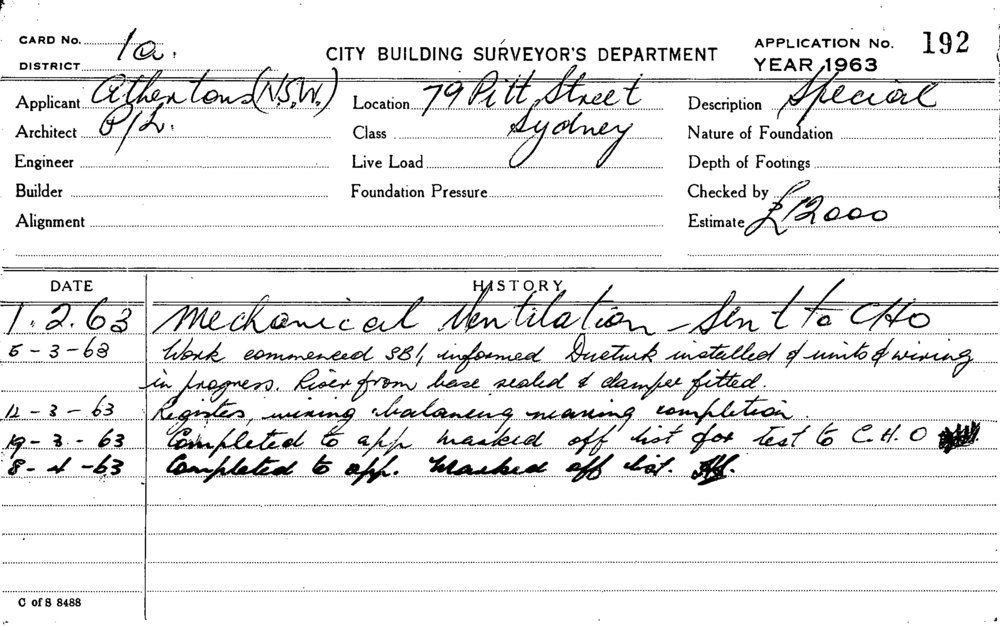 CARD No. 1a.
DISTRICT
CITY BUILDING SURVEYOR'S DEPARTMENT
APPLICATION No. 192
YEAR 1963
Applicant Athertons (N.S.W.)
Architect P/L.
Engineer
Builder
Alignment
Location 79 Pitt Street
Class Sydney
Live Load
Foundation Pressure
Description Special
Nature of Foundation
Depth of Footings
Checked by
Estimate £12000
DATE HISTORY
1.2.63 Mechanical Ventilation - Sent to CHO
5-3-63 Work commenced SBI, informed Ductwk installed & units & wiring
in progress. Riser from base sealed & damper fitted.
12-3-63 Registers, wiring balancing nearing completion.
19-3-63 Completed to app marked off list for test to C.H.O
8-4-63 Completed to app. Marked off list.
C of S 8488